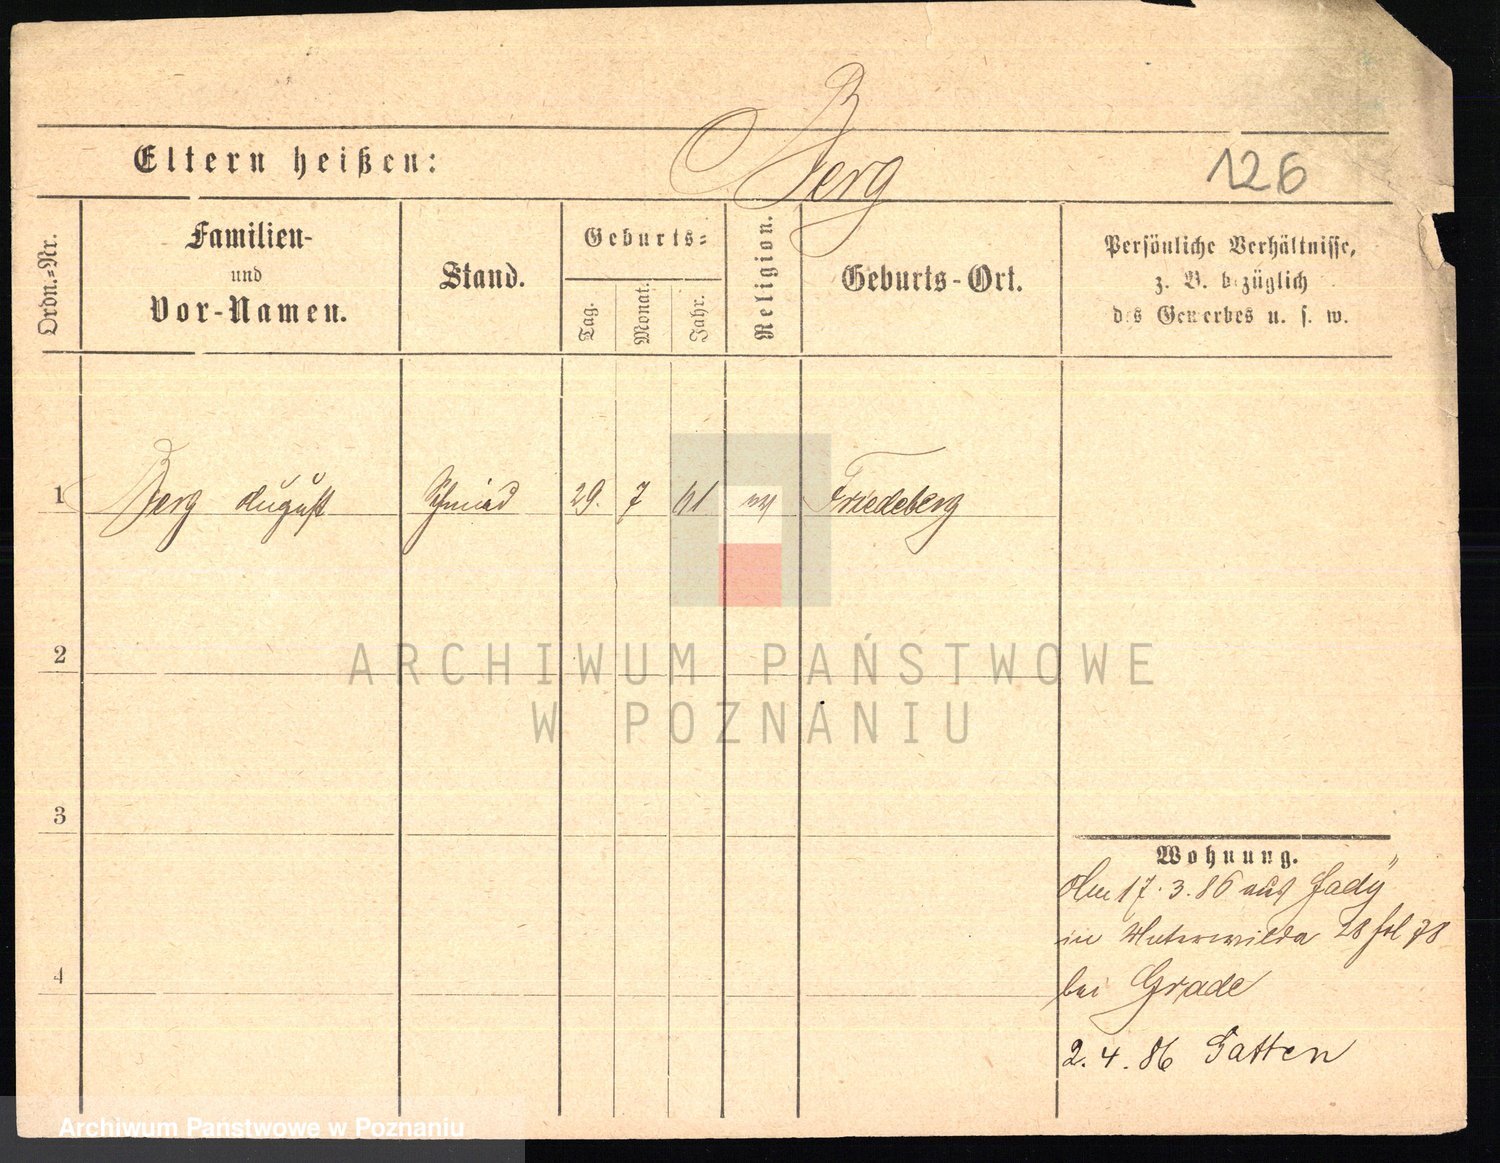 Berg
Eltern heißen:
126
Ordn.-Nr.
Familien-
und
Vor-Namen.
Stand.
Geburts-
Tag.
Monat.
Jahr.
Religion.
Geburts-Ort.
Persönliche Verhältnisse,
z. B. bezüglich
des Gewerbes u. s. w.
1 Berg August Schmied 29. 7 61 ev Friedeberg
2
ARCHIWUM PAŃSTWOWE
W POZNANIU
3
Wohnung.
Am 17.3.86 aus
in Unterwilda 28 fol 78
4
bei Grade
2.4.86 Gatten
Archiwum Państwowe w Poznaniu